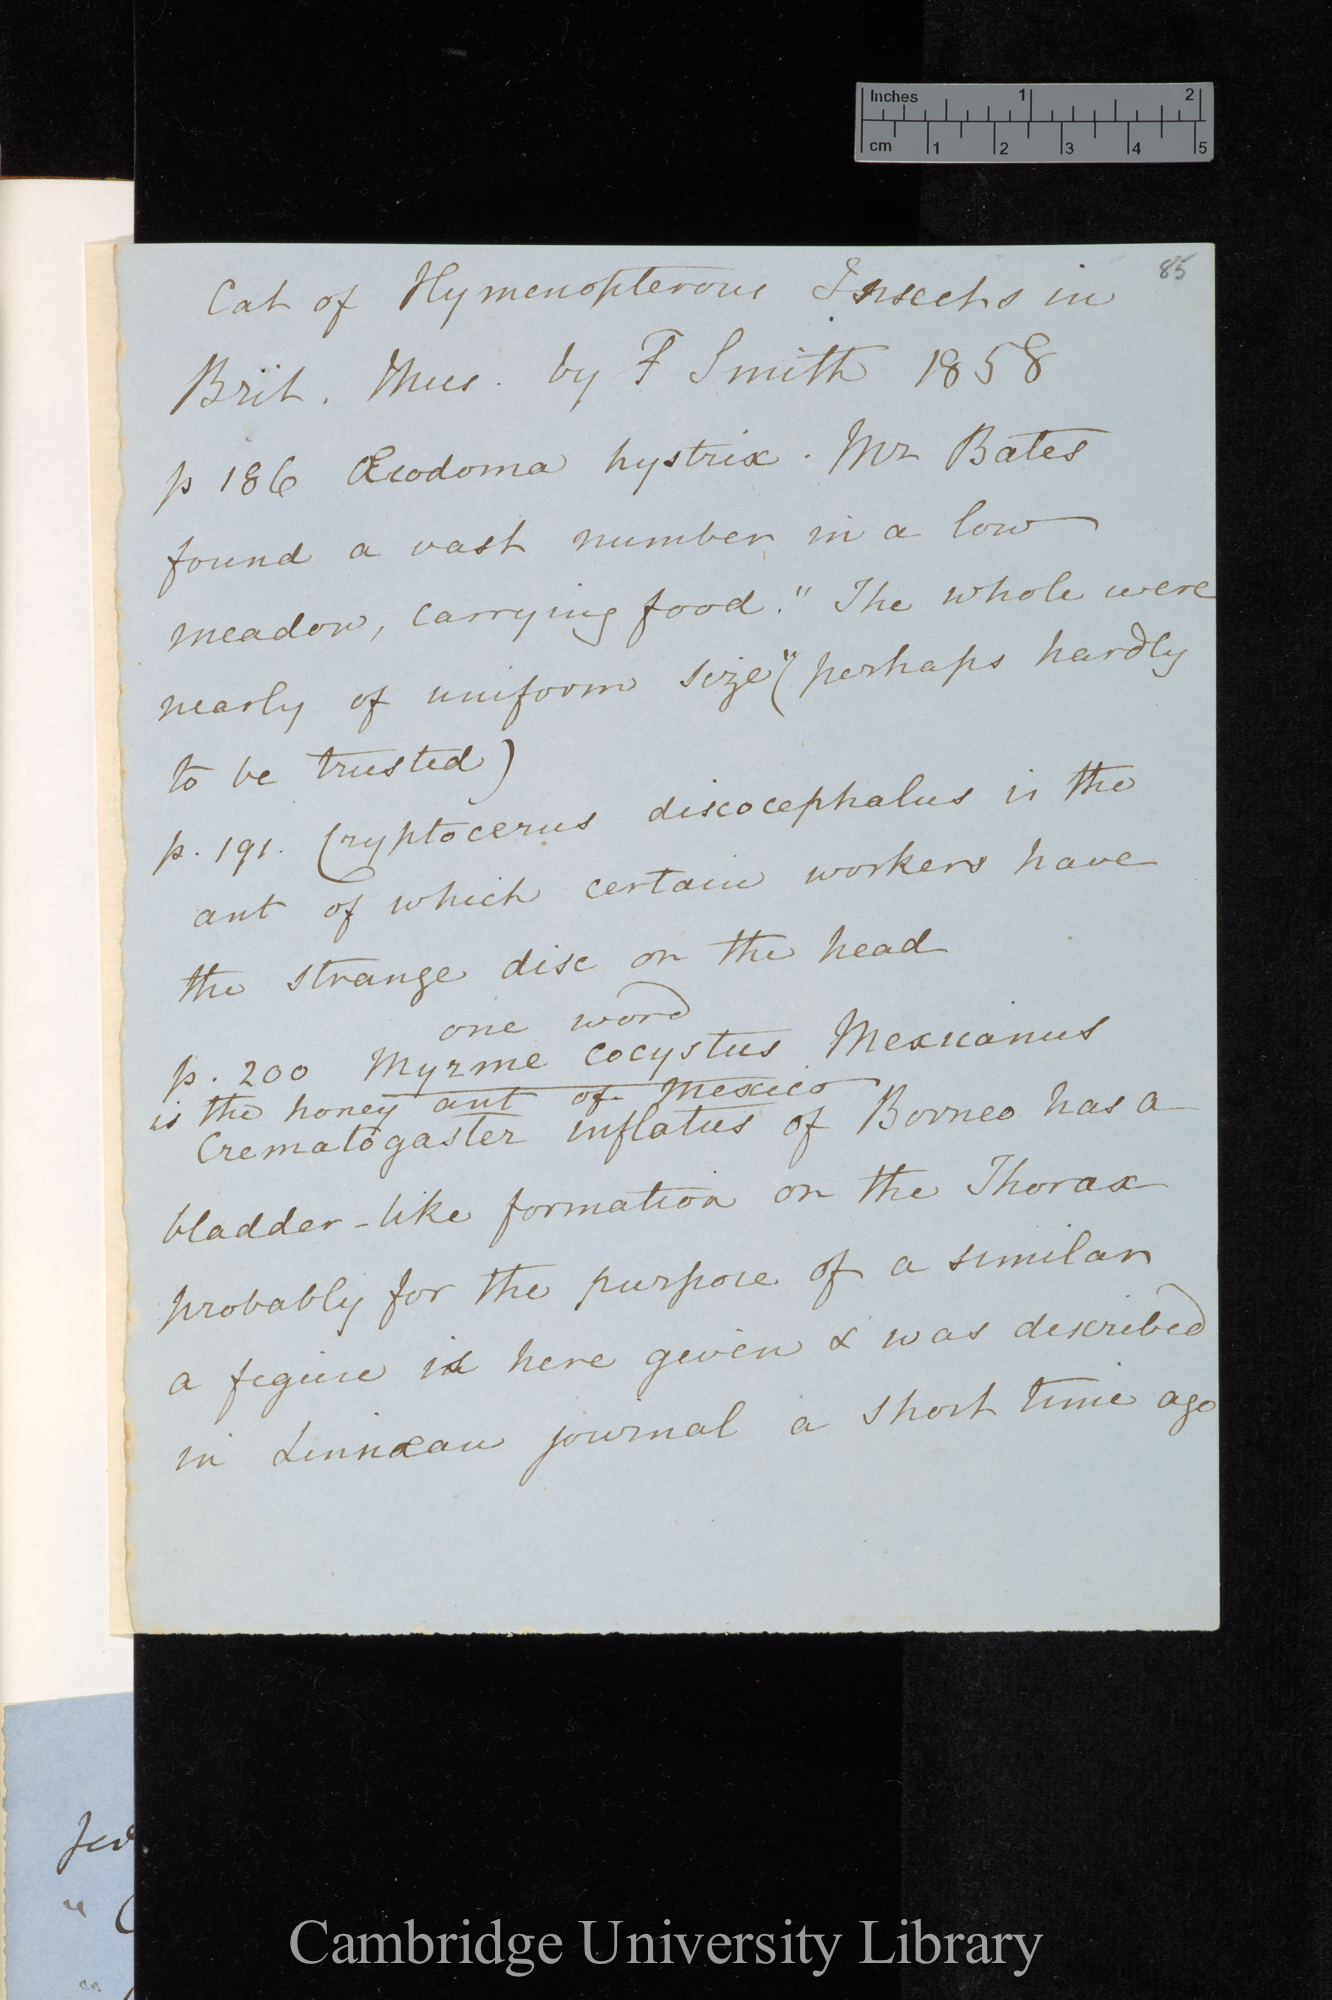 Inches 1 2
cm 1 2 3 4 5
85
Cat of Hymenopterous Insects in
Brit. Mus. by F Smith 1858
p 186 Œcodoma hystrix. Mr Bates
found a vast number in a low
meadow, carrying food." The whole were
nearly of uniform size" (perhaps hardly
to be trusted)
p. 191. Cryptocerus discocephalus is the
ant of which certain workers have
the strange disc on the head
one word
p. 200 Myrme cocystus Mexicanus
is the honey ant of Mexico
Crematogaster inflatus of Borneo has a
bladder-like formation on the Thorax
probably for the purpose of a similar
a figure is here given & was described
in Linnæan journal a short time ago
Cambridge University Library